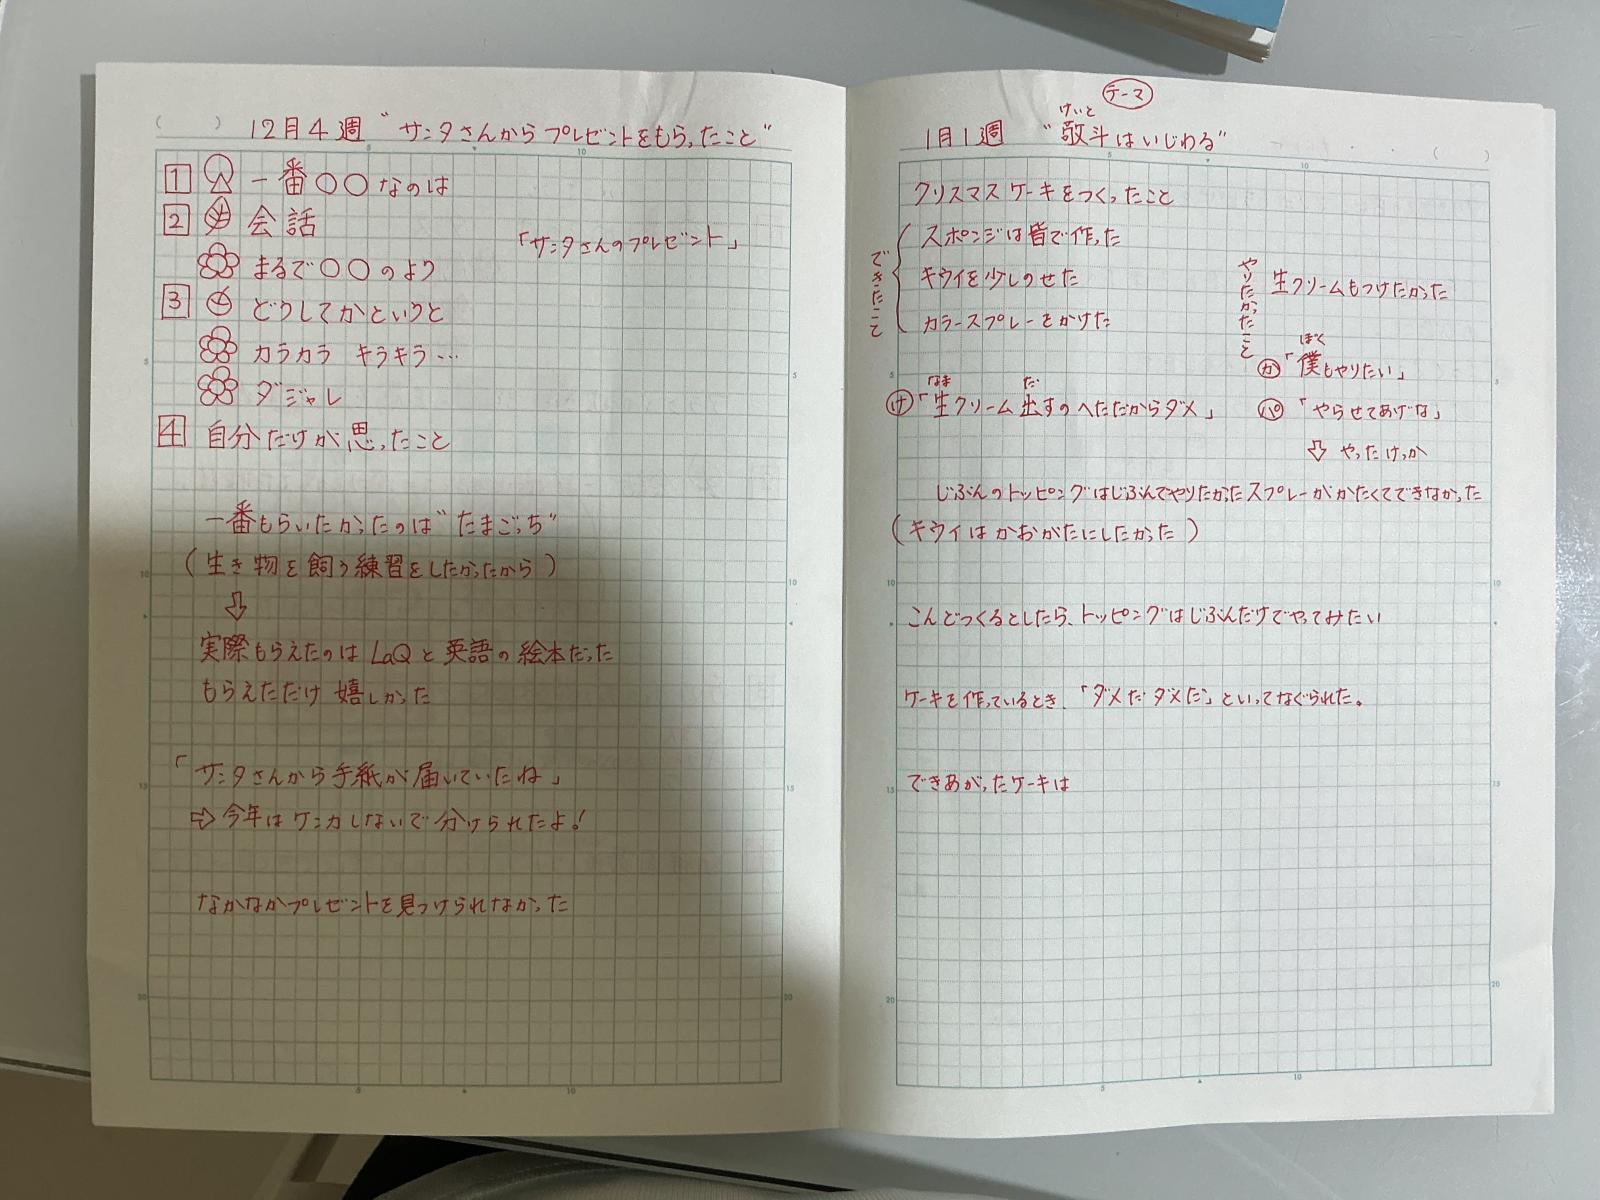 12月4週 "サンタさんからプレゼントをもらったこと"
1 一番○○なのは
2 会話
「サンタさんのプレゼント」
まるで○○のよう
3 どうしてかというと
カラカラ キラキラ…
ダジャレ
4 自分だけが思ったこと
一番もらいたかったのは"たまごっち"
(生き物を飼う練習をしたかったから)
⇩
実際もらえたのは LaQと英語の絵本だった
もらえただけ嬉しかった
「サンタさんから手紙が届いていたね」
⇨今年はケンカしないで分けられたよ!
なかなかプレゼントを見つけられなかった
テーマ
けいと
1月1週 "敬斗はいじわる"
クリスマスケーキをつくったこと
できたこと
スポンジは皆で作った
キウイを少しのせた
カラースプレーをかけた
やりたかったこと
生クリームもつけたかった
ぼく
か「僕もやりたい」
なま だ
け「生クリーム出すのへただからダメ」
パ「やらせてあげな」
⇩ やったけっか
じぶんのトッピングはじぶんでやりたかったスプレーがかたくてできなかった
(キウイはかおがたにしたかった)
こんどつくるとしたら、トッピングはじぶんだけでやってみたい
ケーキを作っているとき、「ダメだダメだ」といってなぐられた。
できあがったケーキは